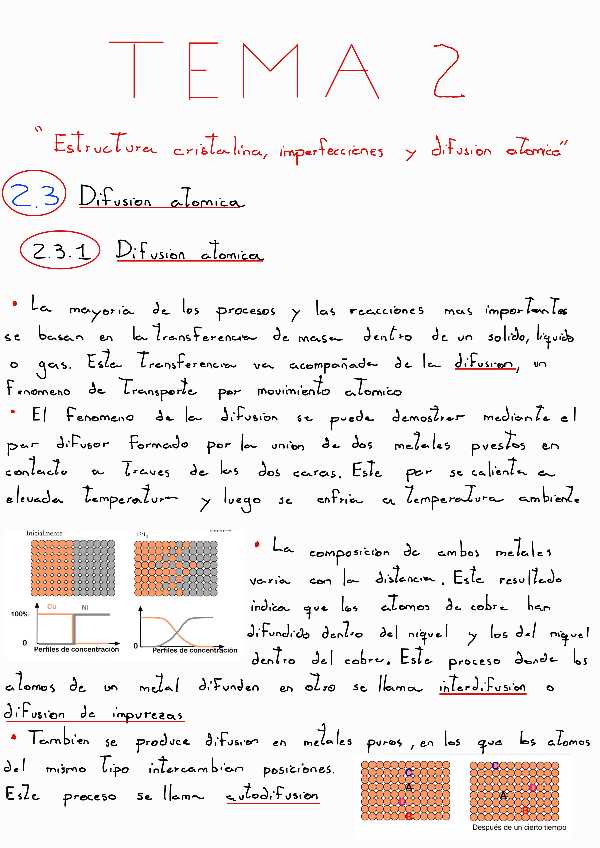 TEMA 2
"Estructura cristalina, imperfecciones y difusion atomica"
2.3 Difusion atomica
2.3.1 Difusion atomica
• La mayoria de los procesos y las reacciones mas importantes
se basan en la transferencia de masa dentro de un solido, liquido
o gas. Esta transferencia va acompañada de la difusion, un
fenomeno de transporte por movimiento atomico
• El fenomeno de la difusion se puede demostrar mediante el
par difusor formado por la union de dos metales puestos en
contacto a traves de las dos caras. Este par se calienta a
elevada temperatura y luego se enfria a temperatura ambiente
Inicialmente
100%
Cu Ni
0
Perfiles de concentración
0
Perfiles de concentración
• La composicion de ambos metales
varia con la distancia. Este resultado
indica que los atomos de cobre han
difundido dentro del niquel y los del niquel
dentro del cobre. Este proceso donde los
atomos de un metal difunden en otro se llama interdifusion o
difusion de impurezas
• Tambien se produce difusion en metales puros, en los que los atomos
del mismo tipo intercambian posiciones.
Este proceso se llama autodifusion
C
A
D
B
C
D
A
B
Después de un cierto tiempo